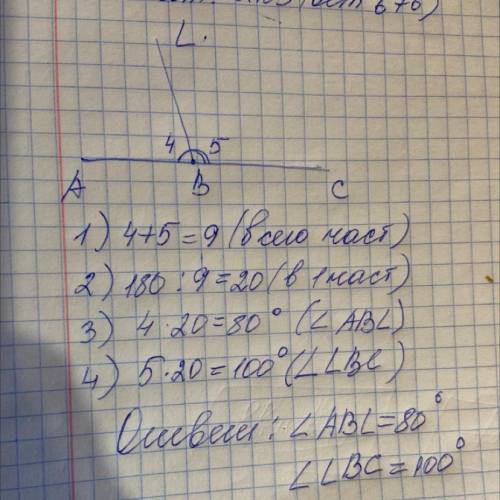 L.
4 5
A B C
1) 4+5=9 (всего част)
2) 180:9=20 (в 1 част)
3) 4·20=80° (∠ABL)
4) 5·20=100° (∠LBC)
Ответ: ∠ABL=80°
∠LBC=100°